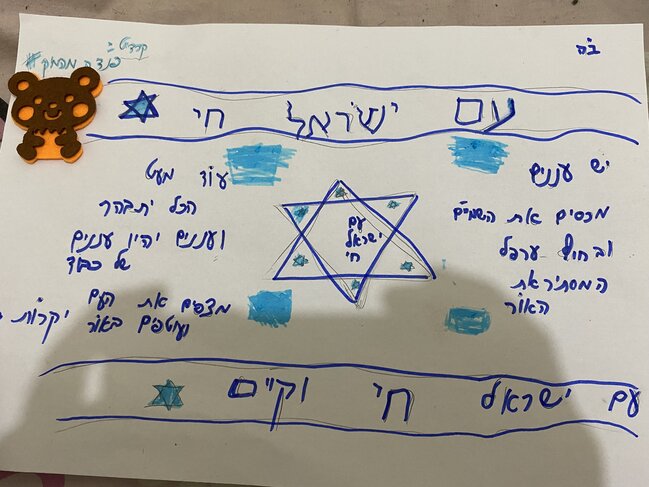 ב"ה
קרדיט:
פנדה
עם ישראל חי
יש עננים
מכסים את השמיים
ובחוץ ערפל
המסתיר את
האור
עם
ישראל
חי
עוד מעט
הכל יתבהר
ועננים יהיו עננים
של כבוד
מצפים את העם
ועוטפים באור יקרות
עם ישראל חי וקיים